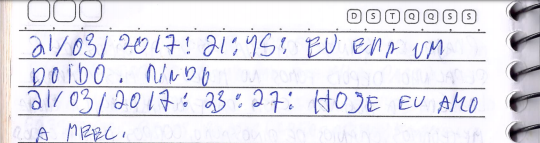 D S T Q Q S S
21/03/2017: 21:45: EU ERA UM
DOIDO.
21/03/2017: 23:27: HOJE EU AMO
A